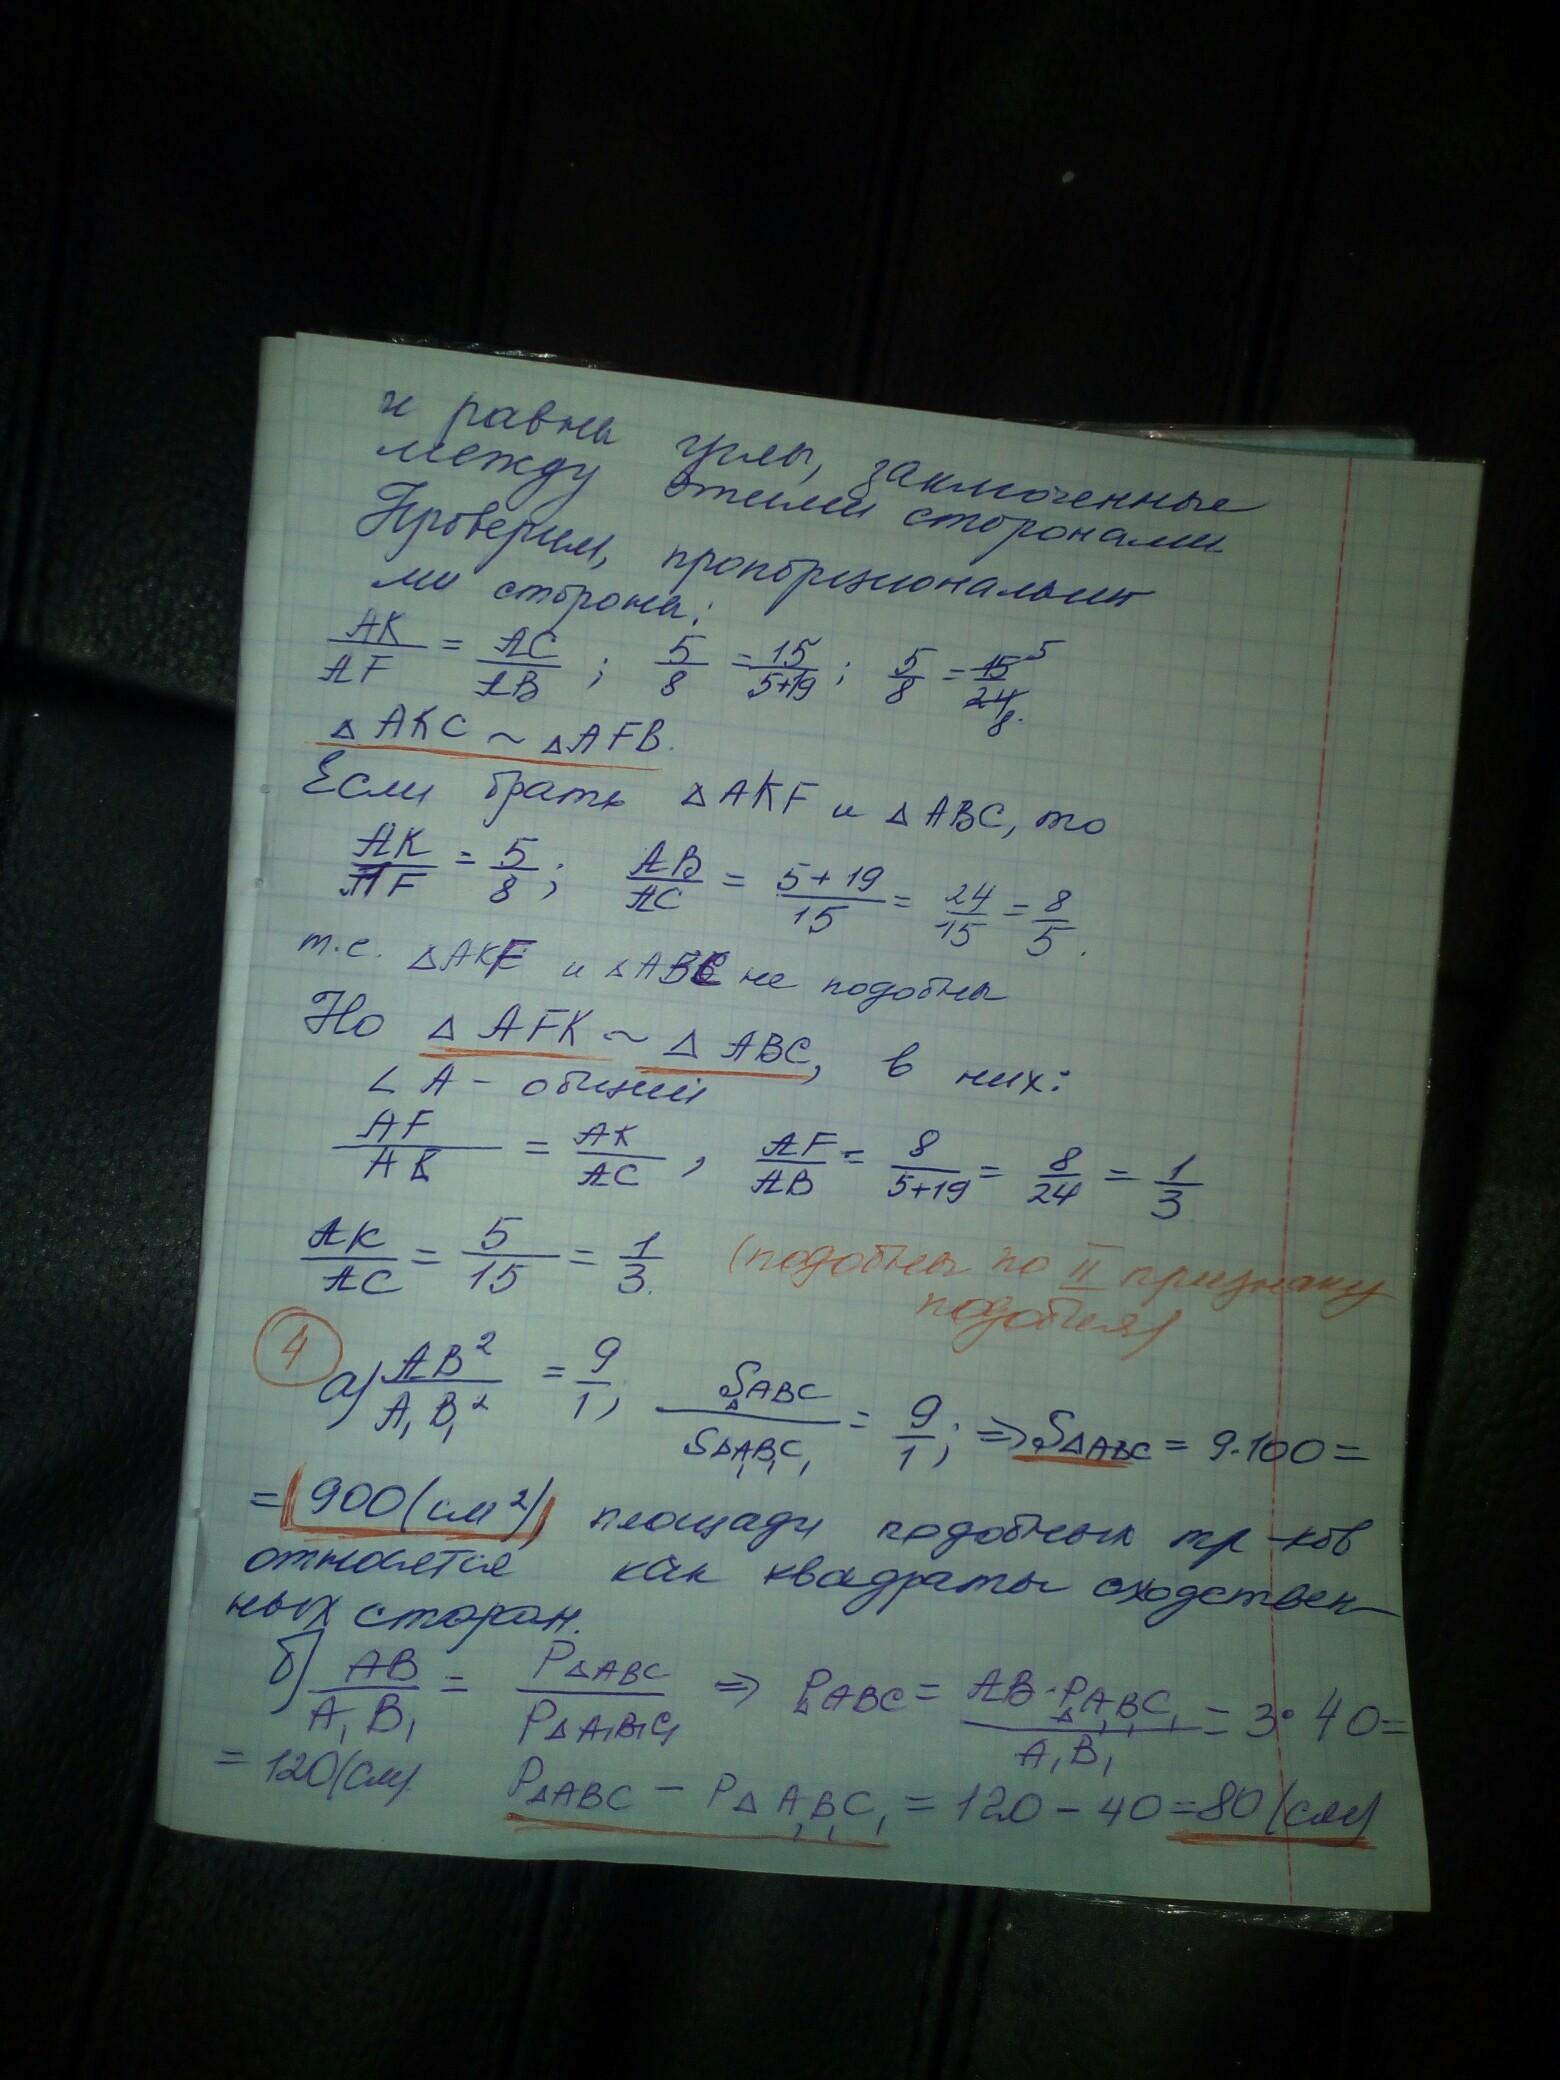 и равны углы, заключенные
между этими сторонами
Проверим, пропорциональны
ли стороны:
AK/AF = AC/AB ; 5/8 = 15/5+19 ; 5/8 = 15 5/24 8.
△AKC ~ △AFB.
Если брать △AKF и △ABC, то
AK/AF = 5/8 ; AB/AC = 5+19/15 = 24/15 = 8/5.
т.е. △AKF и △ABC не подобны
Но △AFK ~ △ABC, в них:
∠A - общий
AF/AB = AK/AC , AF/AB = 8/5+19 = 8/24 = 1/3
AK/AC = 5/15 = 1/3. (подобны по II признаку
подобия)
4
а) AB²/A₁B₁² = 9/1 ; S△ABC/S△A₁B₁C₁ = 9/1 ; ⇒ S△ABC = 9·100 =
= 900(см²), площади подобных тр-ков
относятся как квадраты сходствен-
ных сторон.
б) AB/A₁B₁ = P△ABC/P△A₁B₁C₁ ⇒ P△ABC = AB·P△A₁B₁C₁/A₁B₁ = 3·40 =
= 120(см) P△ABC − P△A₁B₁C₁ = 120 − 40 = 80 (см)